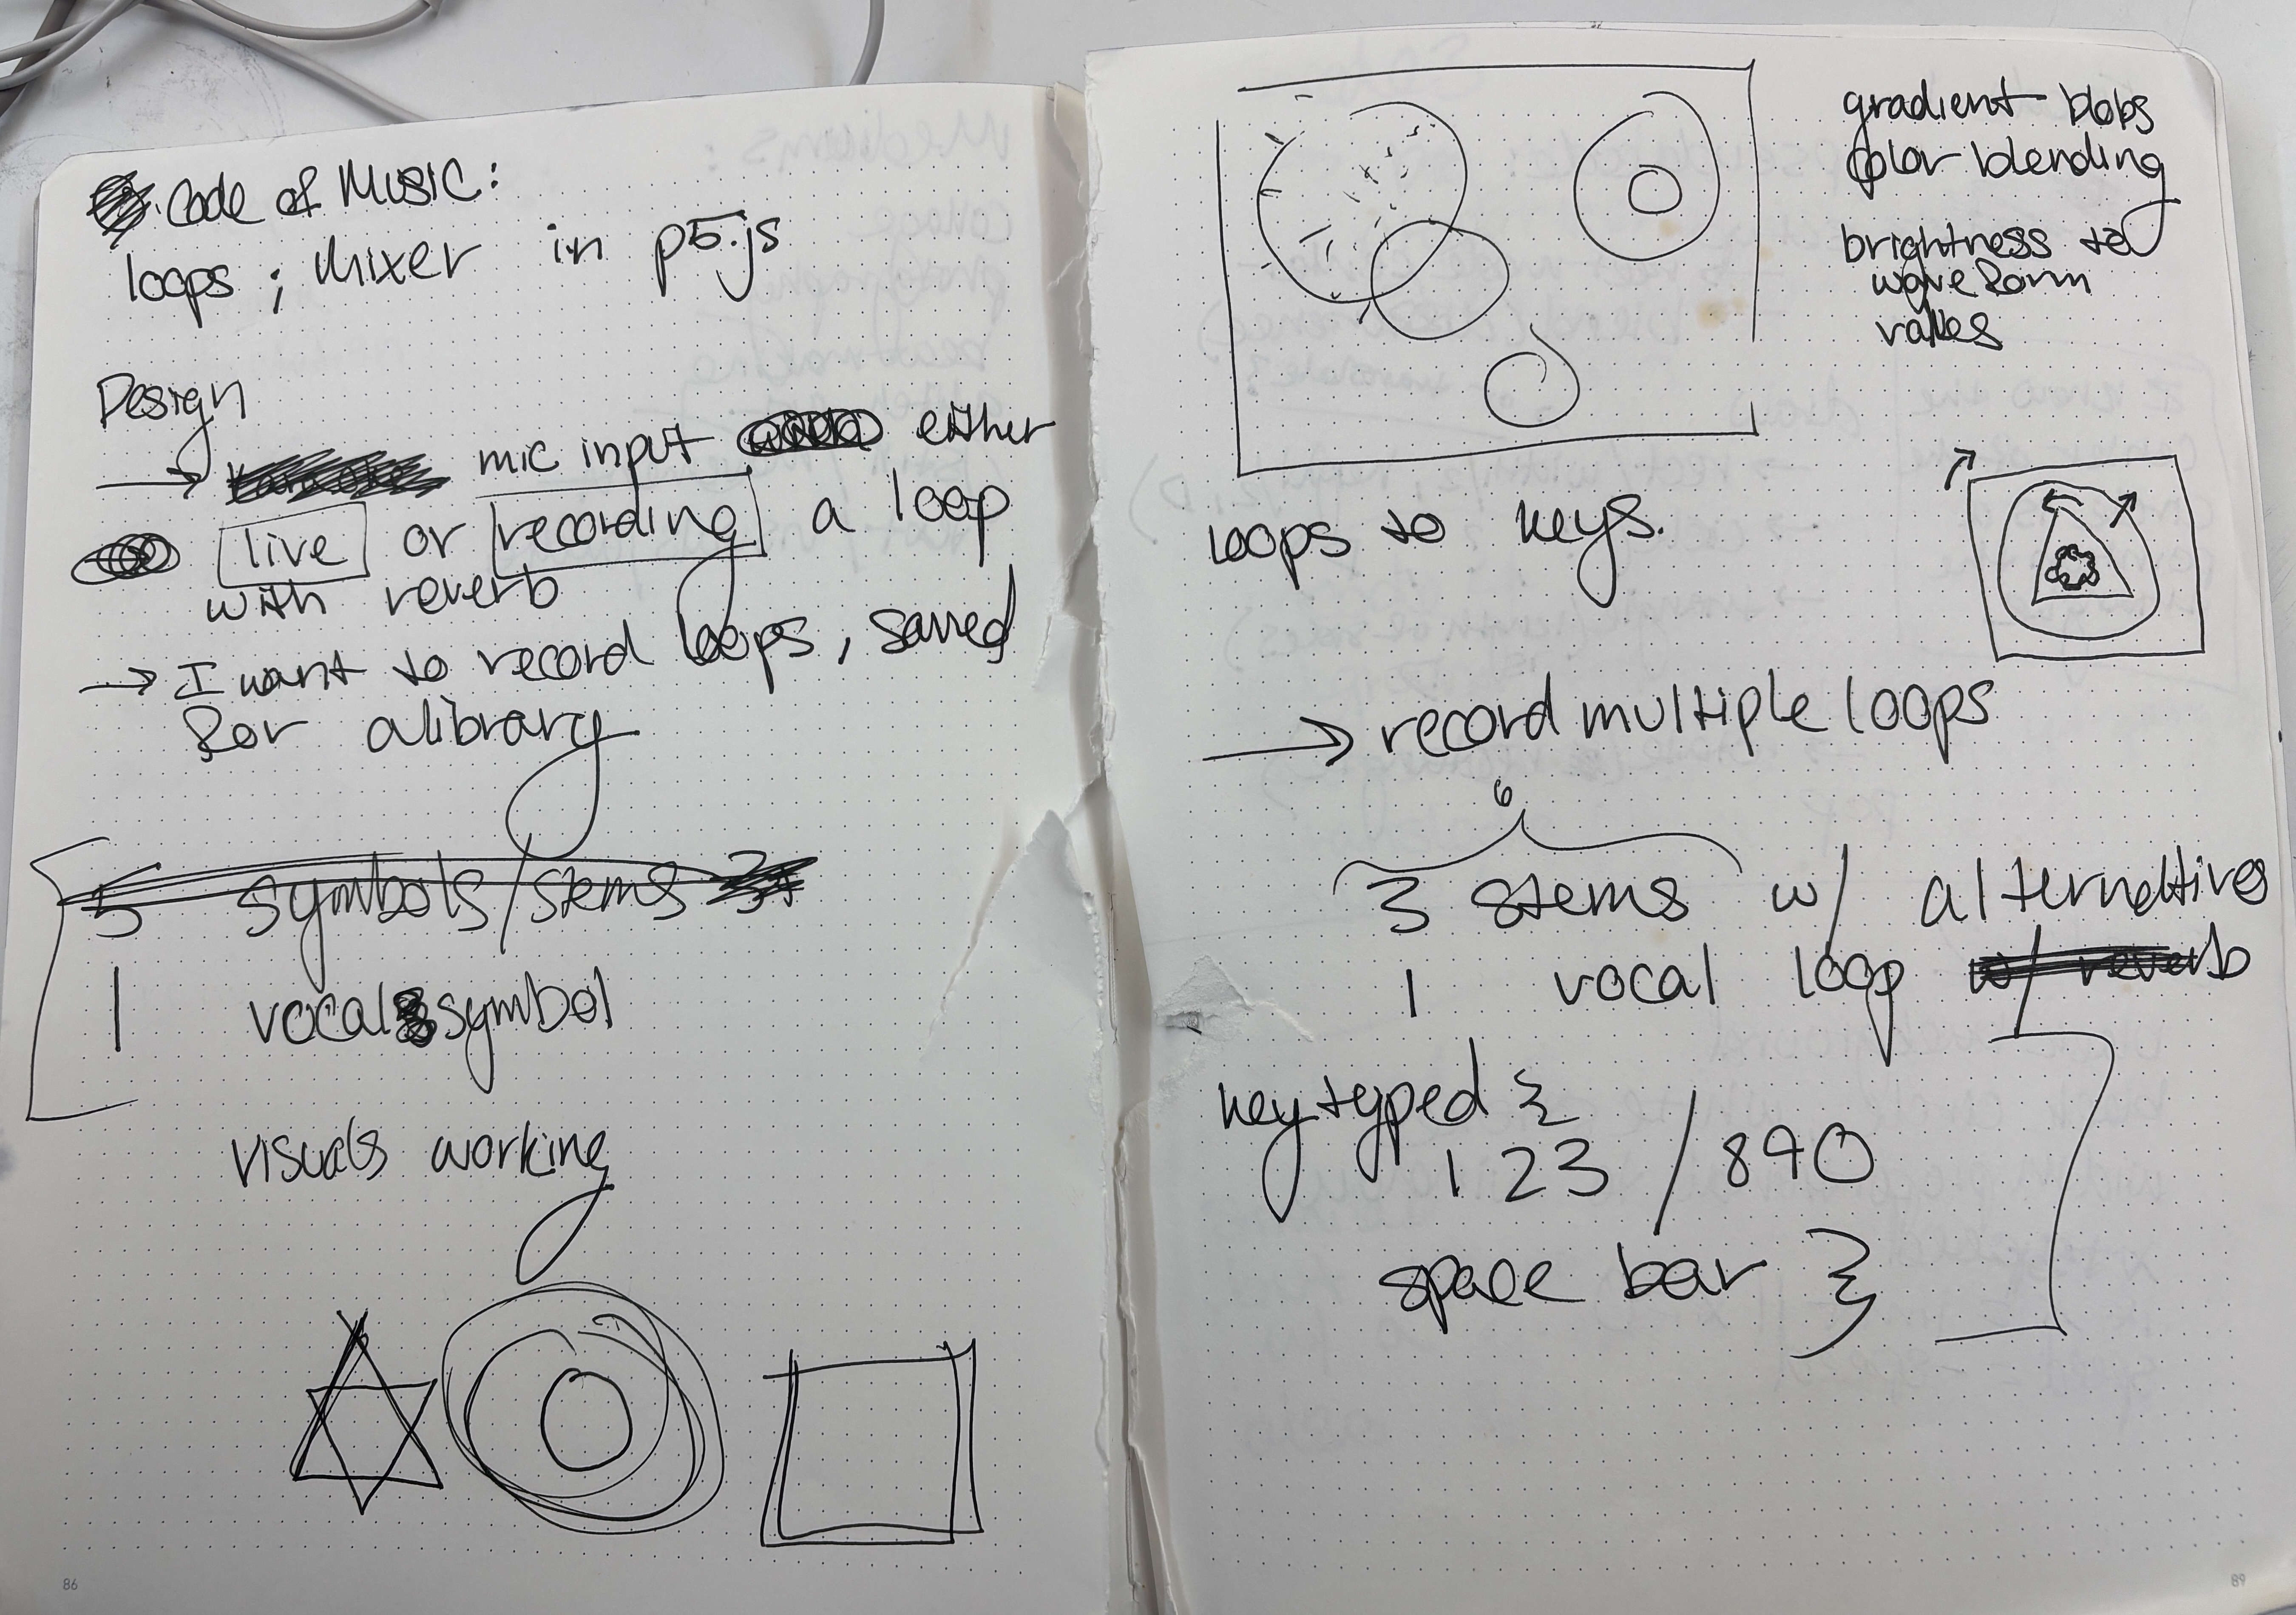 Code of Music:
loops ; Mixer in p5.js
Design
→ mic input either
live or recording a loop
with reverb
→ I want to record loops, saved
for a library
5 symbols/stems
1 vocal symbol
visuals working
86
gradient blobs
color blending
brightness to
waveform
values
loops to keys.
→ record multiple loops
6
3 stems w/ alternatives
1 vocal loop w/ reverb
key typed {
1 2 3 / 8 9 0
space bar }
89